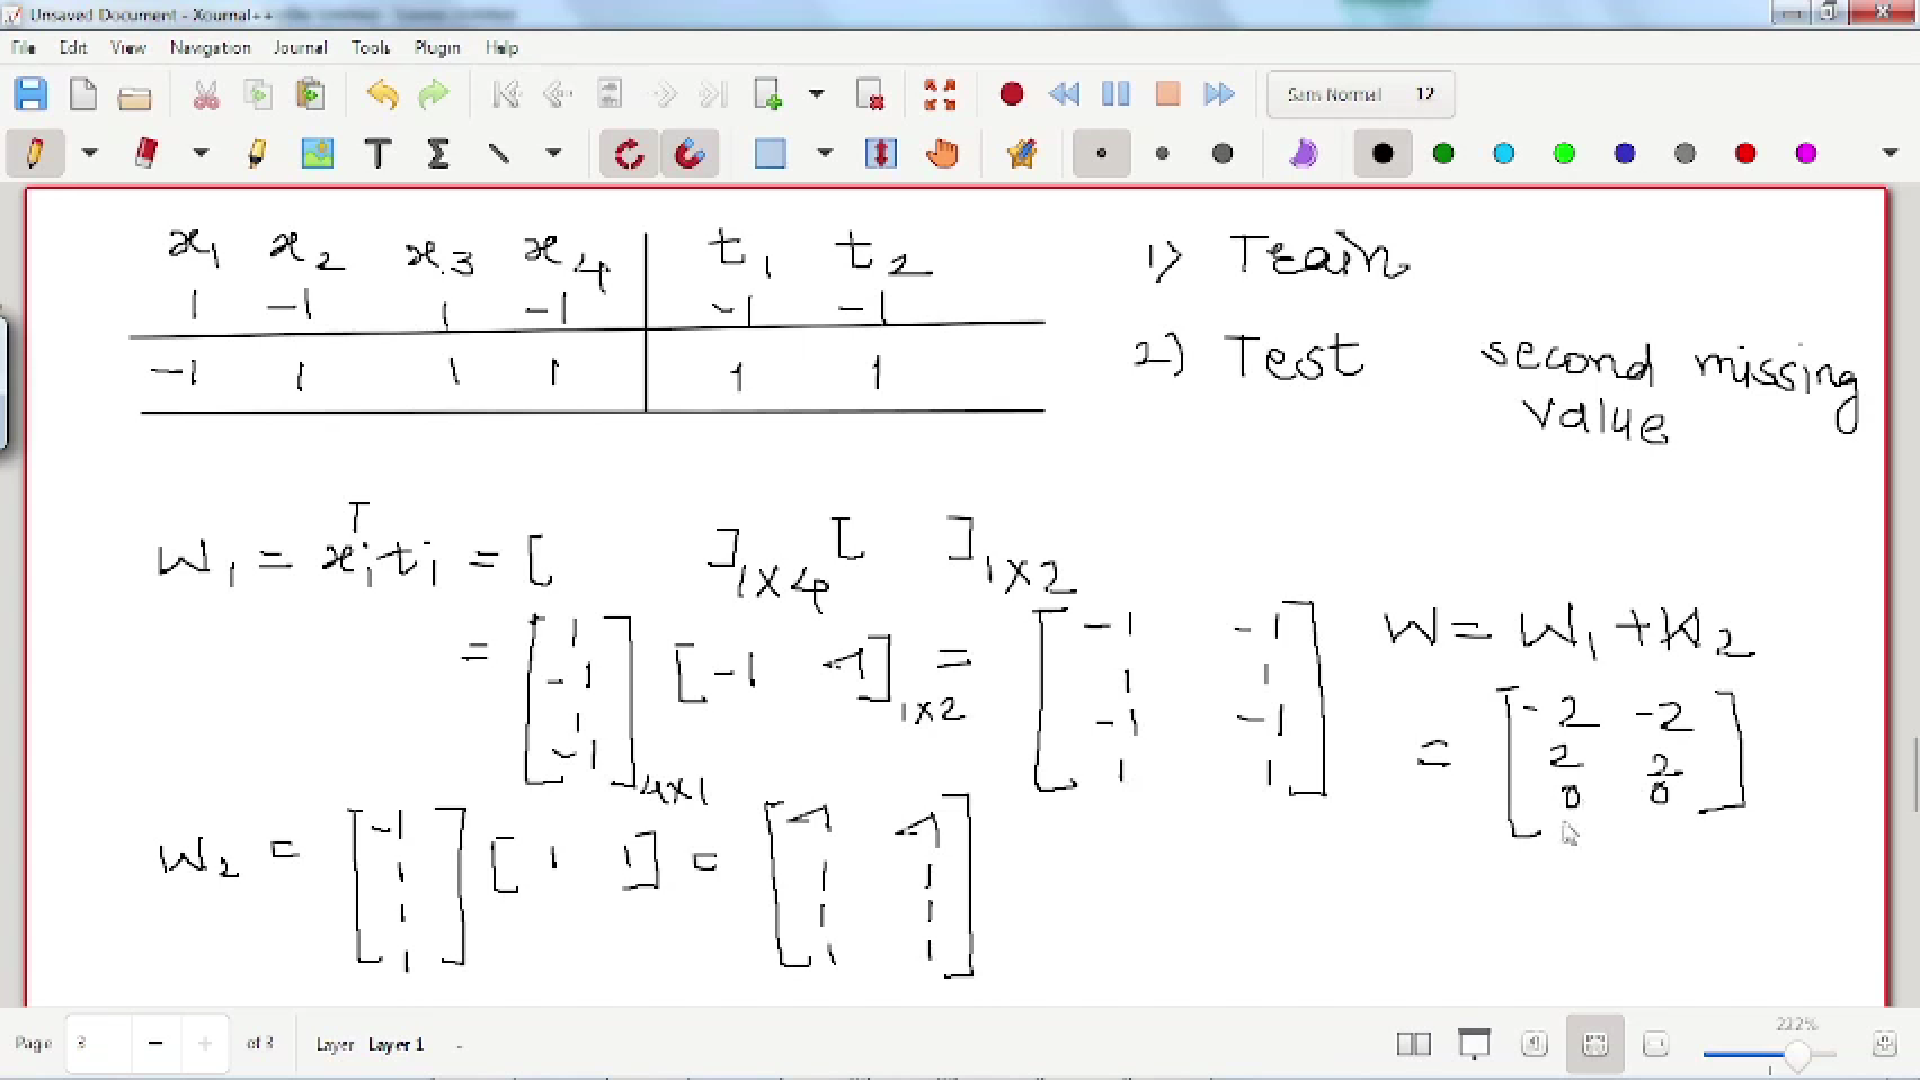 Unsaved Document - Xournal++
File Edit View Navigation Journal Tools Plugin Help
Sans Normal 12
x1 x2 x3 x4 t1 t2
1 -1 1 -1 -1 -1
-1 1 1 1 1 1
1) Train
2) Test second missing
value
W1 = xiᵀti = [ ]1×4 [ ]1×2
= [1 -1 1 -1]4×1 [-1 -1]1×2 = [-1 -1
1 1
-1 -1
1 1]
W = W1 + W2
= [-2 -2
2 2
0 0
W2 = [-1 1 1 1] [1 1] = [-1 -1
1 1
1 1
1 1]
Page 3 of 3 Layer Layer 1
222%